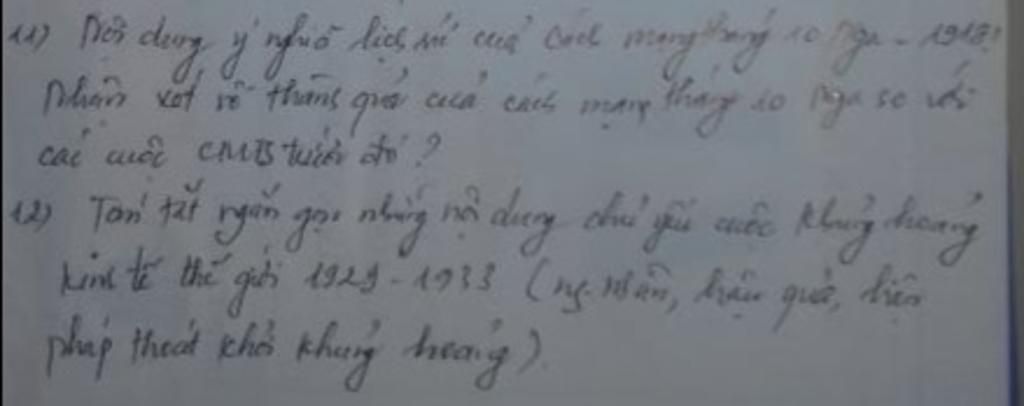 11) Nội dung ý nghĩa lịch sử của cách mạng tháng 10 Nga - 1917?
Nhận xét về thắng quả của cách mạng tháng 10 Nga so với
các cuộc CMTS trước đó?
12) Tóm tắt ngắn gọn những nội dung chủ yếu cuộc khủng hoảng
kinh tế thế giới 1929 - 1933 (ng. nhân, hậu quả, biện
pháp thoát khỏi khủng hoảng).